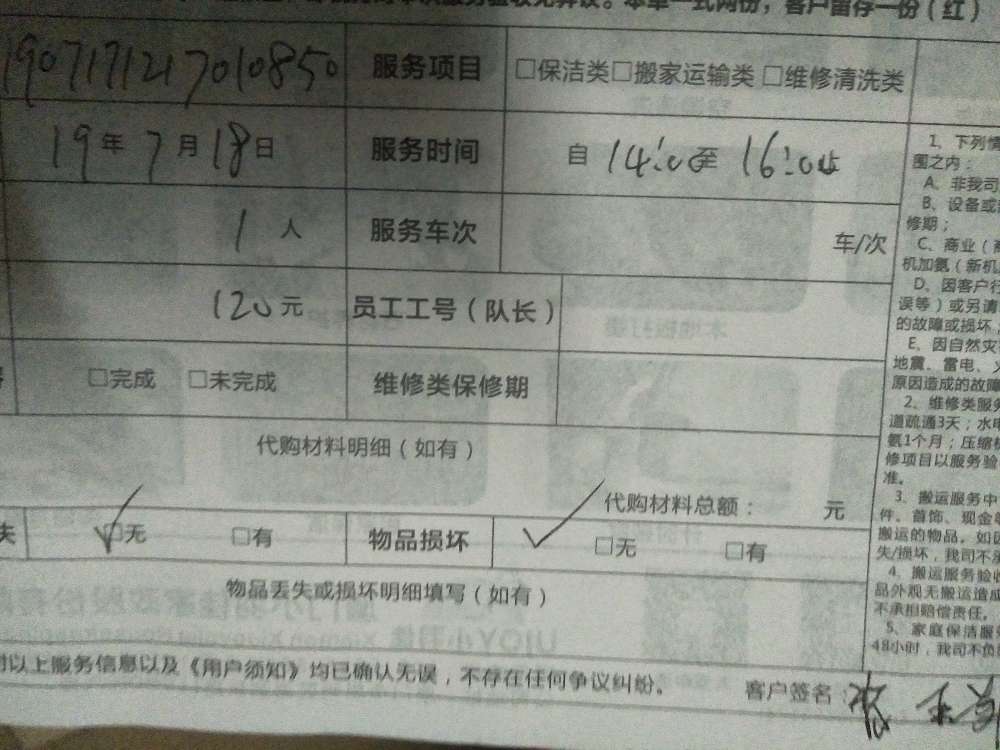 服务验收无异议。本单一式两份，客户留存一份（红）
1907171217010850 服务项目 □保洁类□搬家运输类 □维修清洗类
19年 7月 18日 服务时间 自 14:00至 16:00
1 人 服务车次 车/次
120元 员工工号（队长）
□完成 □未完成 维修类保修期
代购材料明细（如有）
代购材料总额： 元
失 ☑无 □有 物品损坏 ✓ □无 □有
物品丢失或损坏明细填写（如有）
以上服务信息以及《用户须知》均已确认无误，不存在任何争议纠纷。
客户签名：
1、下列情
围之内：
A、非我司
B、设备或
修期；
C、商业（商
机加氨（新机
D、因客户行
误等）或另请
的故障或损坏，
E、因自然灾
地震、雷电、火
原因造成的故障
2、维修类服务
道疏通3天；水电
氨1个月；压缩机
修项目以服务验
准。
3、搬运服务中
件、首饰、现金
搬运的物品。如因
失/损坏，我司不承
4、搬运服务验收
品外观无搬运造成
不承担赔偿责任。
5、家庭保洁服
48小时，我司不负